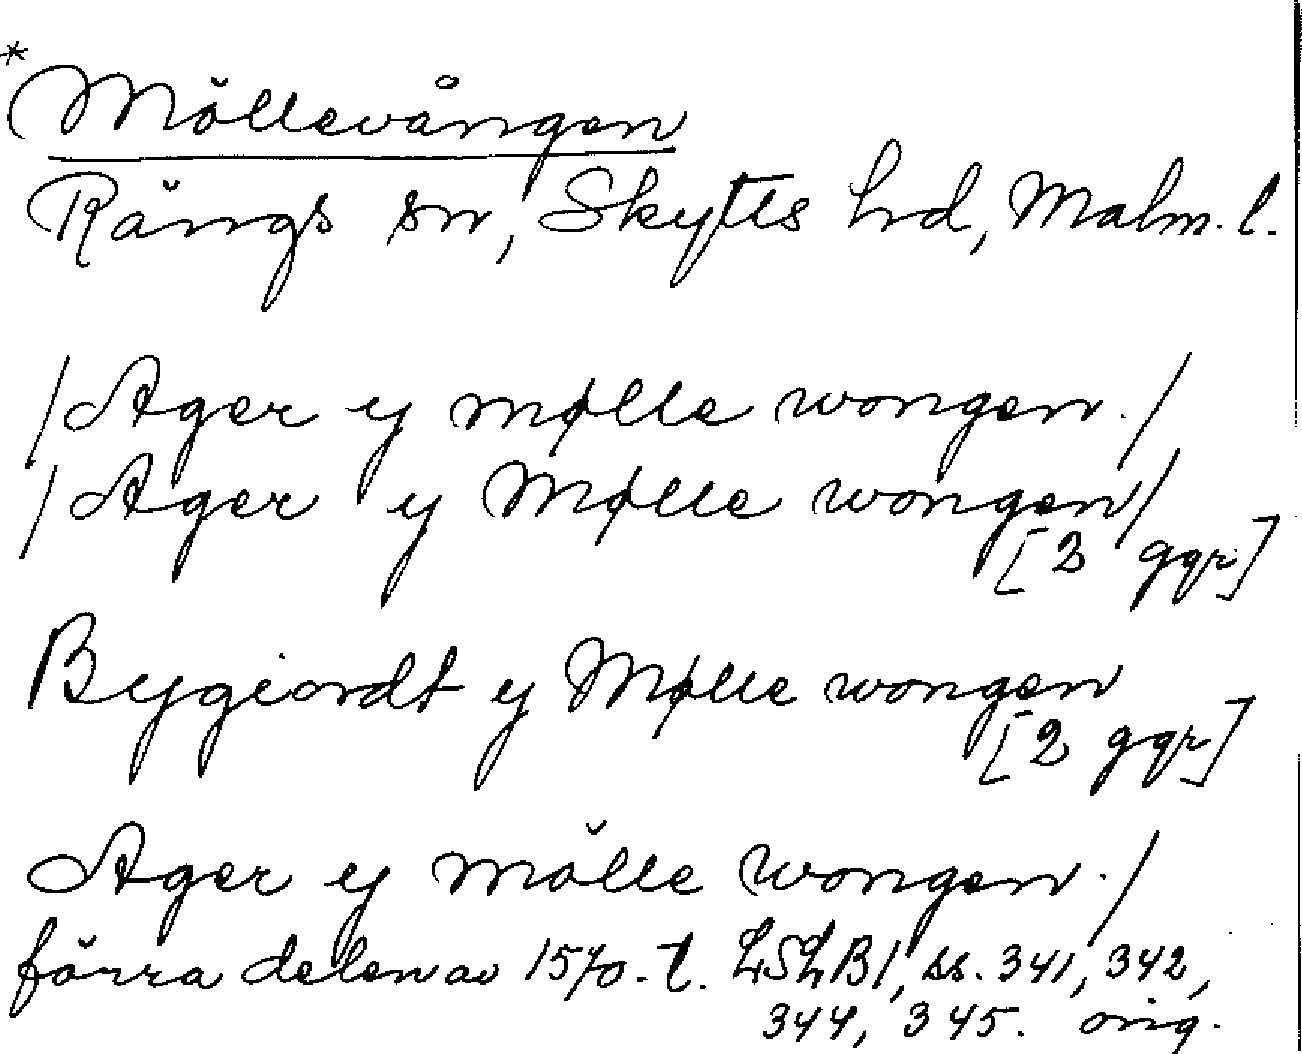 * Möllevången
Rängs sn, Skytts hd, Malm. l.
/Ager y mølle wongen./
/Ager y Mølle wongen/
[2 ggr]
Bygiordt y Mølle wongen
[2 ggr]
Ager y mölle wongen./
förra delen av 1570-t. LSLB1, ss. 341, 342,
344, 345. orig.